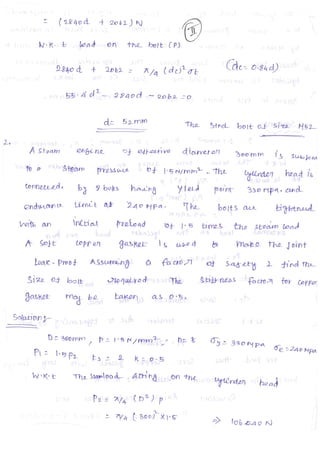 = (2840d + 2062) N
II
W.K.t load on the bolt (P)
2840d + 2062 = π/4 (dc)² σt (dc = 0.84d)
55.4 d² - 2840d - 2062 = 0
d = 52mm The stnd bolt of size M52
2.
A steam engine of effective diameter 300mm is
to a steam pressure of 1.5 N/mm². The cylinder head is
connected by 8 bolts having yield point 330 MPa and
endurance limit at 240 MPa. The bolts are tightened
with an initial preload of 1.5 times the steam load
A soft copper gasket is used to make the Joint
leak-proof Assuming a factor of safety 2 find the
size of bolt required The stiffness factor for copper
gasket may be taken as 0.5.
Solution:-
D = 300mm, p = 1.5 N/mm², n = 8 σy = 330 MPa σe = 240 MPa
P1 = 1.5 P2 fs = 2 K = 0.5
W.K.t The Acting on the cylinder head
P2 = π/4 (D²) p
= π/4 (300)² X 1.5 ⇒ 106